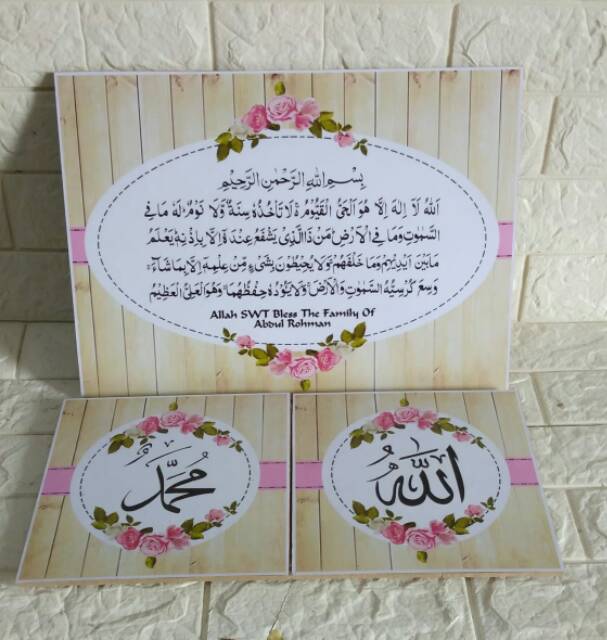 بِسْمِ اللهِ الرَّحْمٰنِ الرَّحِيْمِ
اَللهُ لَآ اِلٰهَ اِلَّا هُوَ اَلْحَيُّ الْقَيُّوْمُ ەۚ لَا تَأْخُذُهٗ سِنَةٌ وَّلَا نَوْمٌ ۗ لَهٗ مَا فِى
السَّمٰوٰتِ وَمَا فِى الْاَرْضِ ۗ مَنْ ذَا الَّذِيْ يَشْفَعُ عِنْدَهٗٓ اِلَّا بِاِذْنِهٖ ۗ يَعْلَمُ
مَا بَيْنَ اَيْدِيْهِمْ وَمَا خَلْفَهُمْ ۚ وَلَا يُحِيْطُوْنَ بِشَيْءٍ مِّنْ عِلْمِهٖٓ اِلَّا بِمَا شَآءَ ۚ
وَسِعَ كُرْسِيُّهُ السَّمٰوٰتِ وَالْاَرْضَ ۚ وَلَا يَـُٔوْدُهٗ حِفْظُهُمَا ۚ وَهُوَ الْعَلِيُّ الْعَظِيْمُ
Allah SWT Bless The Family Of
Abdul Rohman
مُحَمَّد
اللّٰهُ